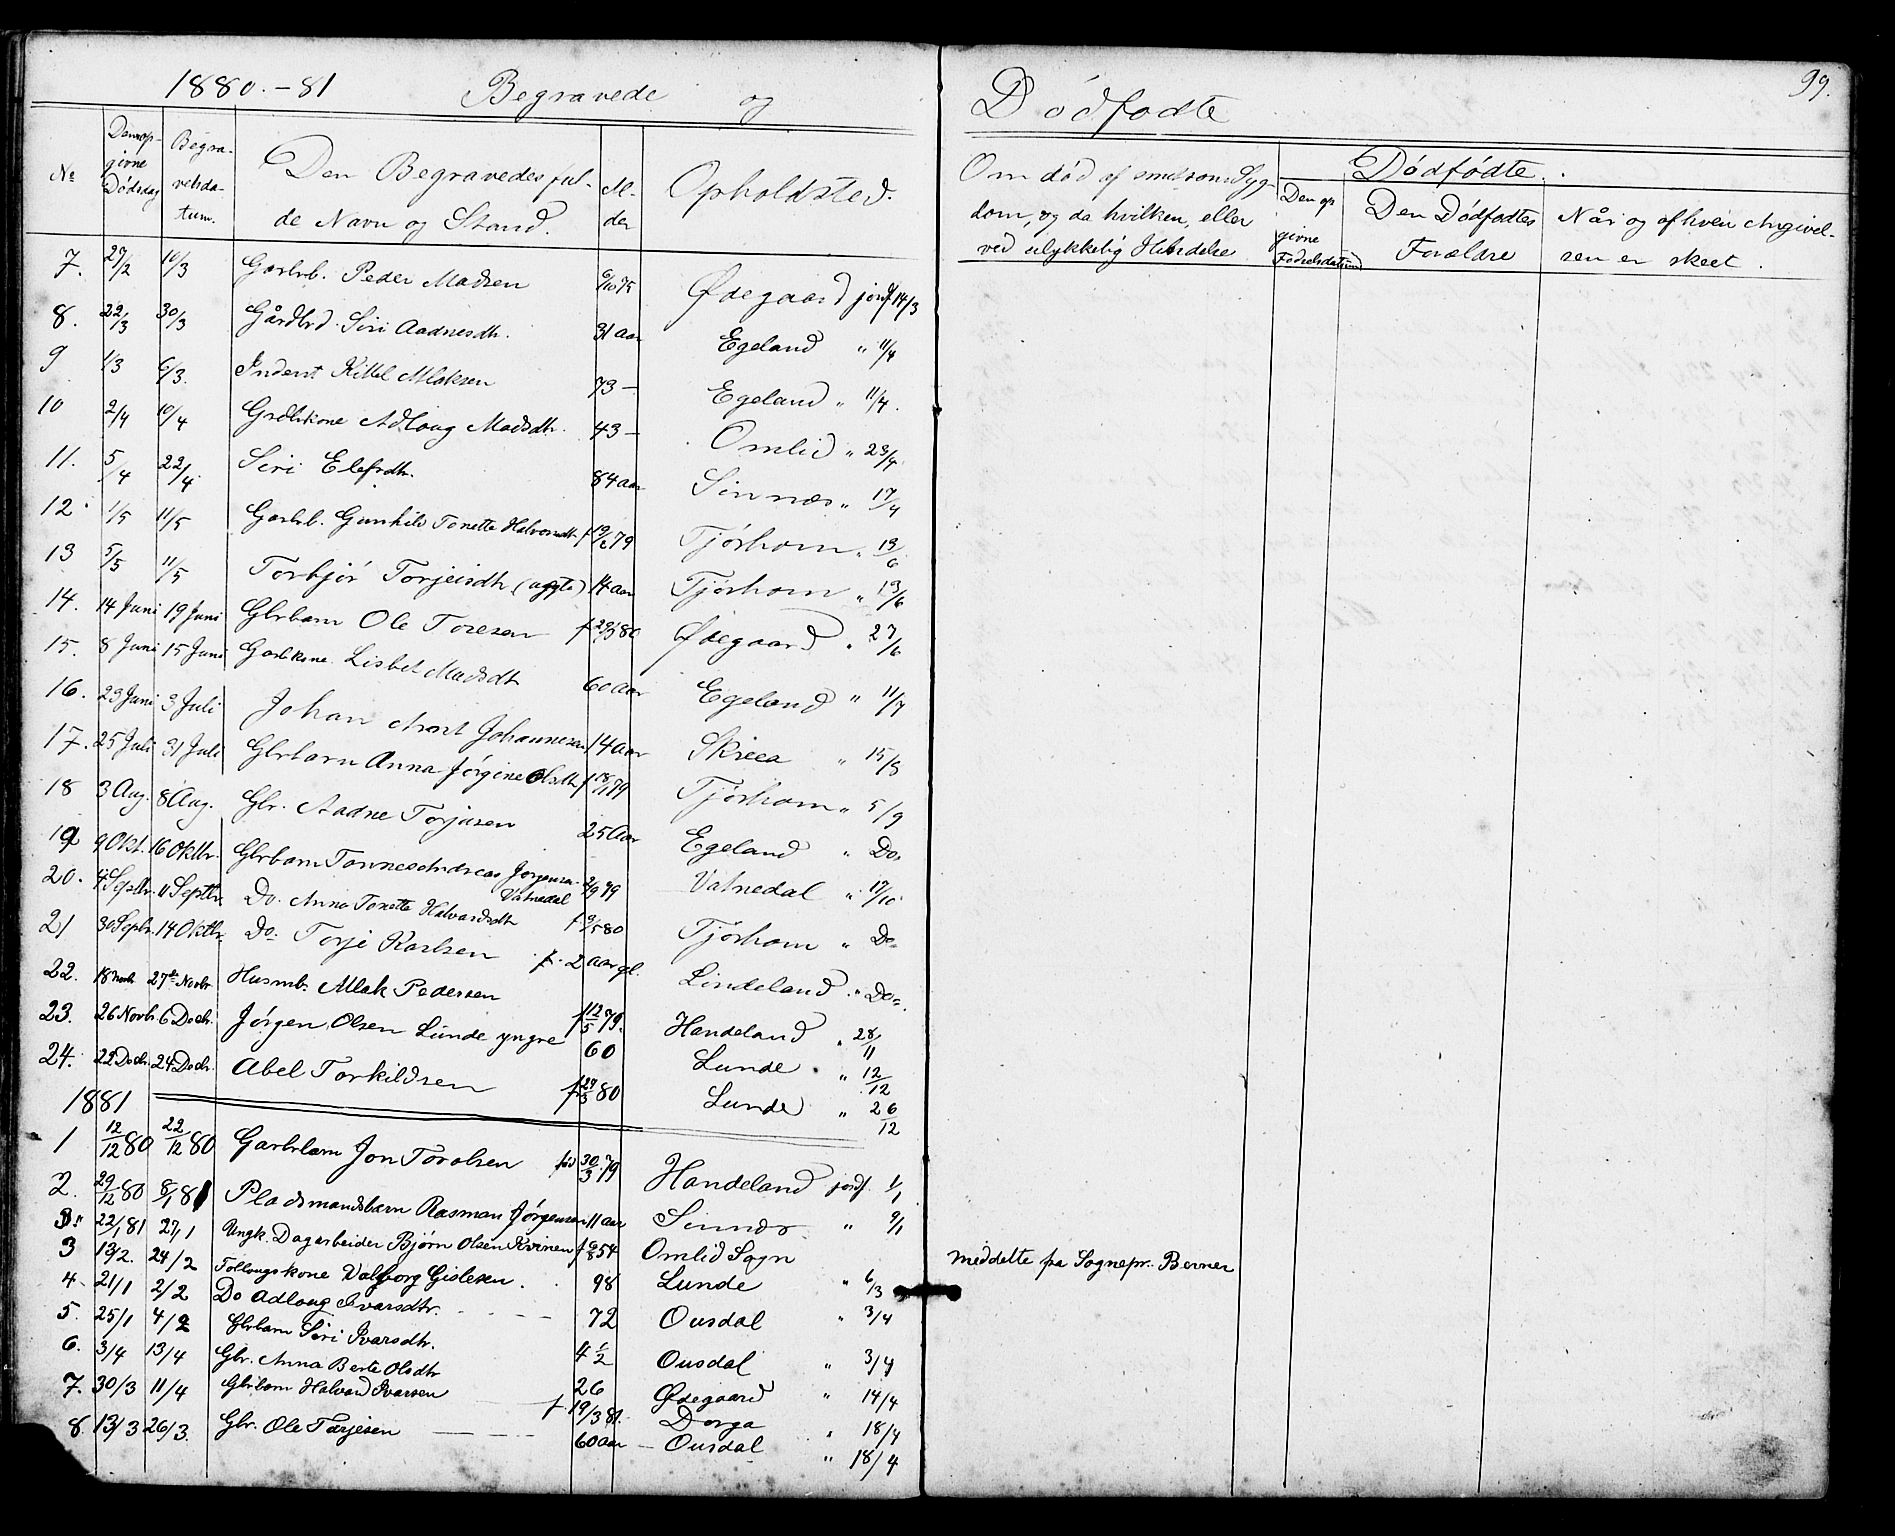 1880.-81 Begravede og Dödfödte 99.
No Den opgivne Dödsdag Begravelsdatum. Den Begravedes fulde Navn og Stand. Alder Opholdsted. Om död af smitsom Sygdom, og da hvilken, eller ved ulykkelig Hændelse Dödfödte. Den opgivne Födselsdatum Den Dödfödtes Forældre Når og af hvem Angivelsen er skeet.
7. 27/2 10/3 Garbrb. Peder Madsen 75 Ødegaard jordf 14/3
8. 22/3 30/3 Gårdbrd. Siri Aadnesdtr. 31 aar Egeland " 11/4
9 1/3 6/3. Inderst Kittel Mlaksen 73 — Egeland " 11/4.
10 2/4 10/4 Grdbrkone Adloug Madsdtr. 43 — Omlid " 23/4.
11. 5/4 22/4 Siri Elefsdtr. 84 aar Sinnæs " 17/4
12. 1/5 11/5 Garbrb. Gunhild Tonette Halvorsdtr f 79 Tjörhom " 13/6
13 5/5 11/5 Torbjör Torjeisdtr 14 aar Tjörhom " 13/6
14. 14 Juni 19 Juni Gbrbarn Ole Toresen f 80 Ødegaard " 27/6
15. 8 Juni 15 Juni Garbkone Lisbet Madsdtr 60 aar Egeland " 11/7
16. 23 Juni 3 Juli Johan Johannesen 14 aar Skreea " 15/8
17. 25 Juli 31 Juli Gbrbarn Anna Jörgine Olsdtr f 79 Tjörhom " 5/9
18 3 Aug. 8 Aug. Gbr. Aadne Torjusen 25 Aar Egeland " Do
19 9 Okt. 16 Oktbr. Gbrbarn Tønnes Andreas Jörgensen Vatnedal 2/9 79 Vatnedal " 17/10
20. 4 Septbr. 11 Septbr. Do. Anna Tonette Halvardsdtr f 9/5 80 Tjörhom " Do
21 30 Septbr. 14 Oktbr. Do. Torje Karlsen f. 2 aar gl. Lindeland " Do
22. 18 Novb 27de Novbr. Husmb. Mlak Pedersen f 12/5 79. Handeland " 28/11
23. 26 Novb. 6 Decbr. Jörgen Olsen Lunde yngre 60 Lunde " 12/12
24. 22 Decbr. 24 Decbr. Abel Torkildsen f 80 Lunde " 26/12
1881
1 12/12 80 22/12 80 Garbrbarn Jon Torolsen föd 30/3 79 Handeland jordf. 1/1
2. 29/12 80 8/1 81 Pladsmandsbarn Rasman Jörgensen 11 aar Sinnæs " 9/1
3. 22/1 81 27/1 Ungk. Dagarbeider Björn Olsen Kvinen f 6/8 54 Omlid Sogn meddelte fra Sognepr. Berner
3 13/2. 24/2 Follougskone Valborg Gislesen. 98 Lunde " 6/3
4 21/1 2/2 Do Adloug Ivarsdtr. 72 Ousdal " 3/4
5. 25/1 4/2 Gbrbarn Siri Ivarsdtr. 4 1/2 Ousdal " 3/4
6. 3/4 13/4 Gbr. Anna Berte Olsdtr 26 Ødegaard " 14/4
7. 30/3 11/4 Gbrbarn Halvard Ivarsen f 19/3 81. Dorga " 18/4
8. 13/3 26/3. Gbr. Ole Tarjesen 60 aar — Ousdal " 18/4